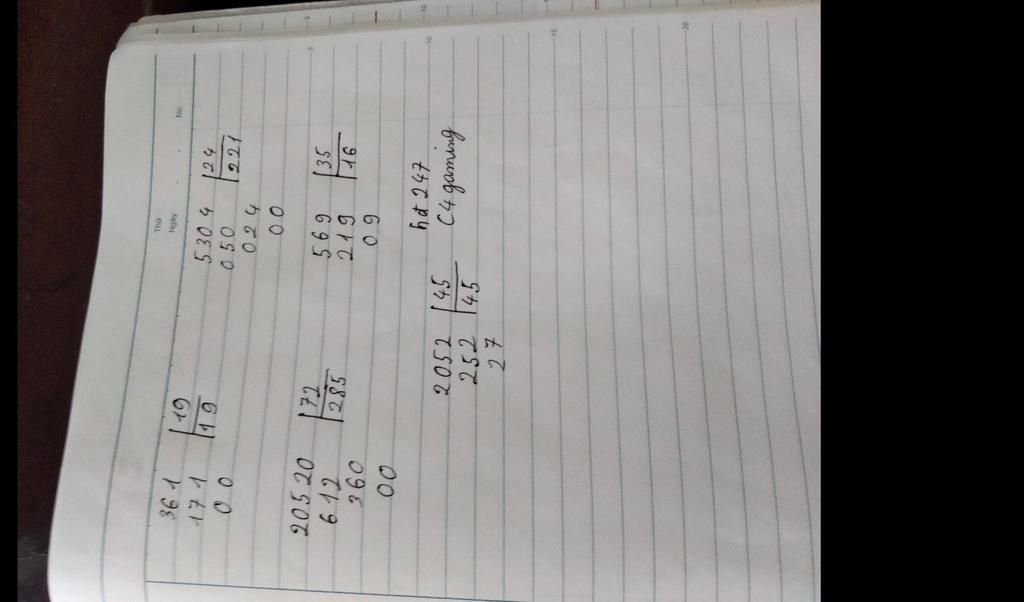 Thứ
Ngày . . No.
361 | 19
171 | 19
00
5304 | 24
050 | 221
024
00
20520 | 72
612 | 285
360
00
569 | 35
219 | 16
09
2052 | 45
252 | 45
27
hdt 247
C4gaming
5
10
15
20
5
10